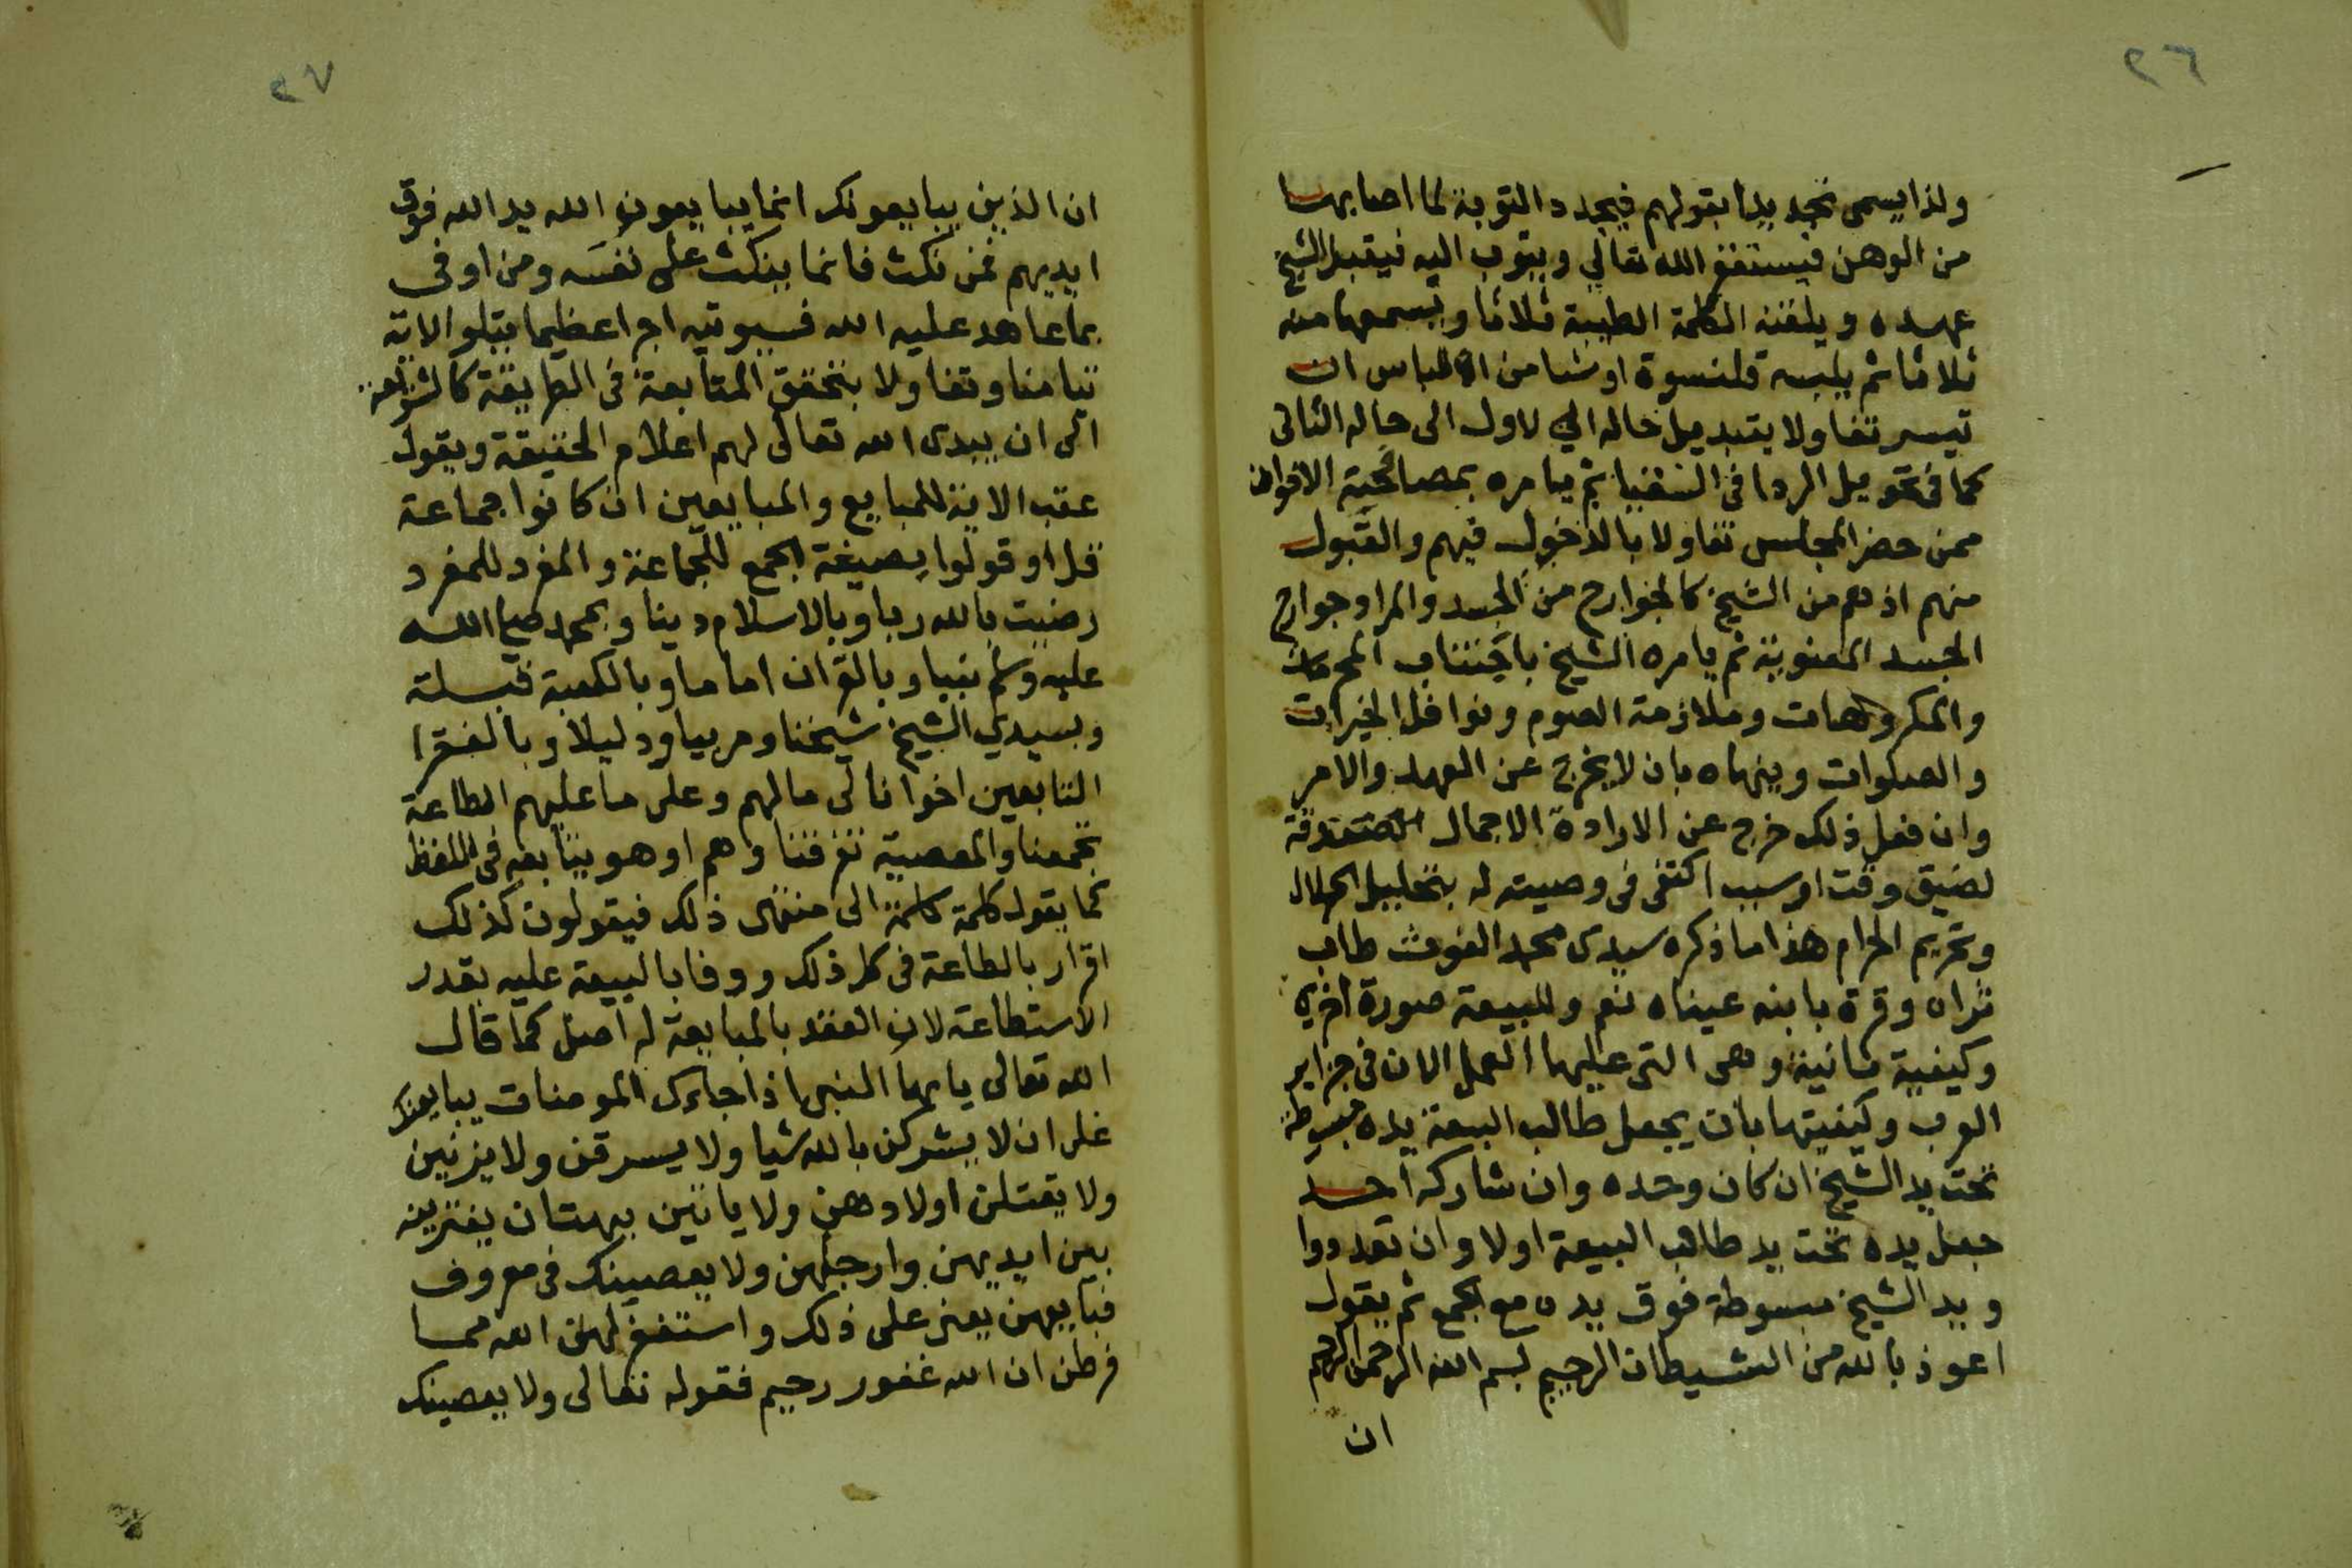 ٢٦
ولذا يسمى تجديدا بقولهم فيجدد التوبة لما اصابها
من الوهن فيستغفر الله تعالي ويتوب اليه فيقبل الشيخ
عهده ويلقنه الكلمة الطيبة ثلاثا ويسمعها منه
ثلاثا ثم يلبسه قلنسوة او شيا من اللباس ان
تيسر تفاولا بتبديل حاله الاول الى حاله الثانى
كما فى تحويل الردا فى السقيا ثم يامره بمصافحة الاخوان
ممن حضر المجلس تفاولا بالدخول فيهم والقبول
منهم اذ هم من الشيخ كالجوارح من الجسد والمراد جوارح
الجسد المعنوية ثم يامره الشيخ باجتناب المحرمات
والمكروهات وملازمة الصوم ونوافل الخيرات
والصلوات وينهاه بان لا يخرج عن العهد والامر
وان فعل ذلك خرج عن الارادة الاجمال
لضيق وقت او سبب اكتفى فى وصيته له بتحليل الحلال
وتحريم الحرام هذا ما ذكره سيدى محمد الغوث طاب
ثراه وقرة بابنه عيناه نعم وللبيعة صورة اخرى
وكيفية ثانية وهى التى عليها العمل الان فى جزاير
العرب وكيفيتها بان يجعل طالب البيعة يده مبسوطة
تحت يد الشيخ ان كان وحده وان شاركه احد
جعل يده تحت يد طالب البيعة اولا وان تعددوا
ويد الشيخ مبسوطة فوق يده مع الجمع ثم يقول
اعوذ بالله من الشيطان الرجيم بسم الله الرحمن الرحيم
ان
٢٧
ان الذين يبايعونك انما يبايعون الله يد الله فوق
ايديهم فمن نكث فانما ينكث على نفسه ومن اوفى
بما عاهد عليه الله فسيوتيه اجرا عظيما يتلو الاية
تيامنا وتفاولا بتحقق المتابعة فى الطريقة كالشريعة
الى ان يبدى الله تعالى لهم اعلام الحقيقة ويقول
عقب الاية للمبايع والمبايعين ان كانوا جماعة
قل او قولوا بصيغة الجمع للجماعة والمفرد للمفرد
رضيت بالله ربا وبالاسلام دينا وبمحمد صلى الله
عليه وسلم نبيا وبالقران اماما وبالكعبة قبلة
وبسيدي الشيخ شيخنا ومربيا ودليلا وبالفقرا
التابعين اخوانا لى مالهم وعلى ما عليهم الطاعة
تجمعنا والمعصية تفرقنا وهم او هو يتابعه فى اللفظ
كما يقول كلمة كلمة الى منتهى ذلك فيقولون كذلك
اقرار بالطاعة فى كل ذلك ووفا بالبيعة عليه بقدر
الاستطاعة لان العقد بالمبايعة له اصل كما قال
الله تعالى يايها النبى اذا جاءك المومنات يبايعنك
على ان لا يشركن بالله شيا ولا يسرقن ولا يزنين
ولا يقتلن اولادهن ولا ياتين ببهتان يفترينه
بين ايديهن وارجلهن ولا يعصينك فى معروف
فبايعهن يعنى على ذلك واستغفر لهن الله مما
فرطن ان الله غفور رحيم فقوله تعالى ولا يعصينك